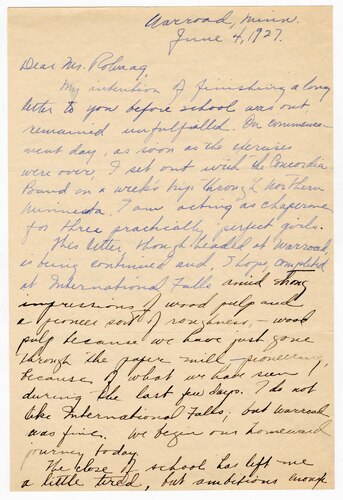 Warroad, Minn.
June 4, 1927.
Dear Mr. Rolvaag,
My intention of finishing a long
letter to you before school was out
remained unfulfilled. On commence-
ment day, as soon as the exercises
were over, I set out with the Concordia
Band on a week's trip through northern
Minnesota. I am acting as chaperone
for three practically perfect girls.
This letter, though headed at Warroad,
is being continued and, I hope, completed
at International Falls amid strong
impressions of wood pulp and
a pioneer sort of roughness, – wood
pulp because we have just gone
through the paper mill – pioneering,
because of what we have seen
during the last few days. I do not
like International Falls; but Warroad
was fine. We begin our homeward
journey today.
The close of school has left me
a little tired, but ambitious enough